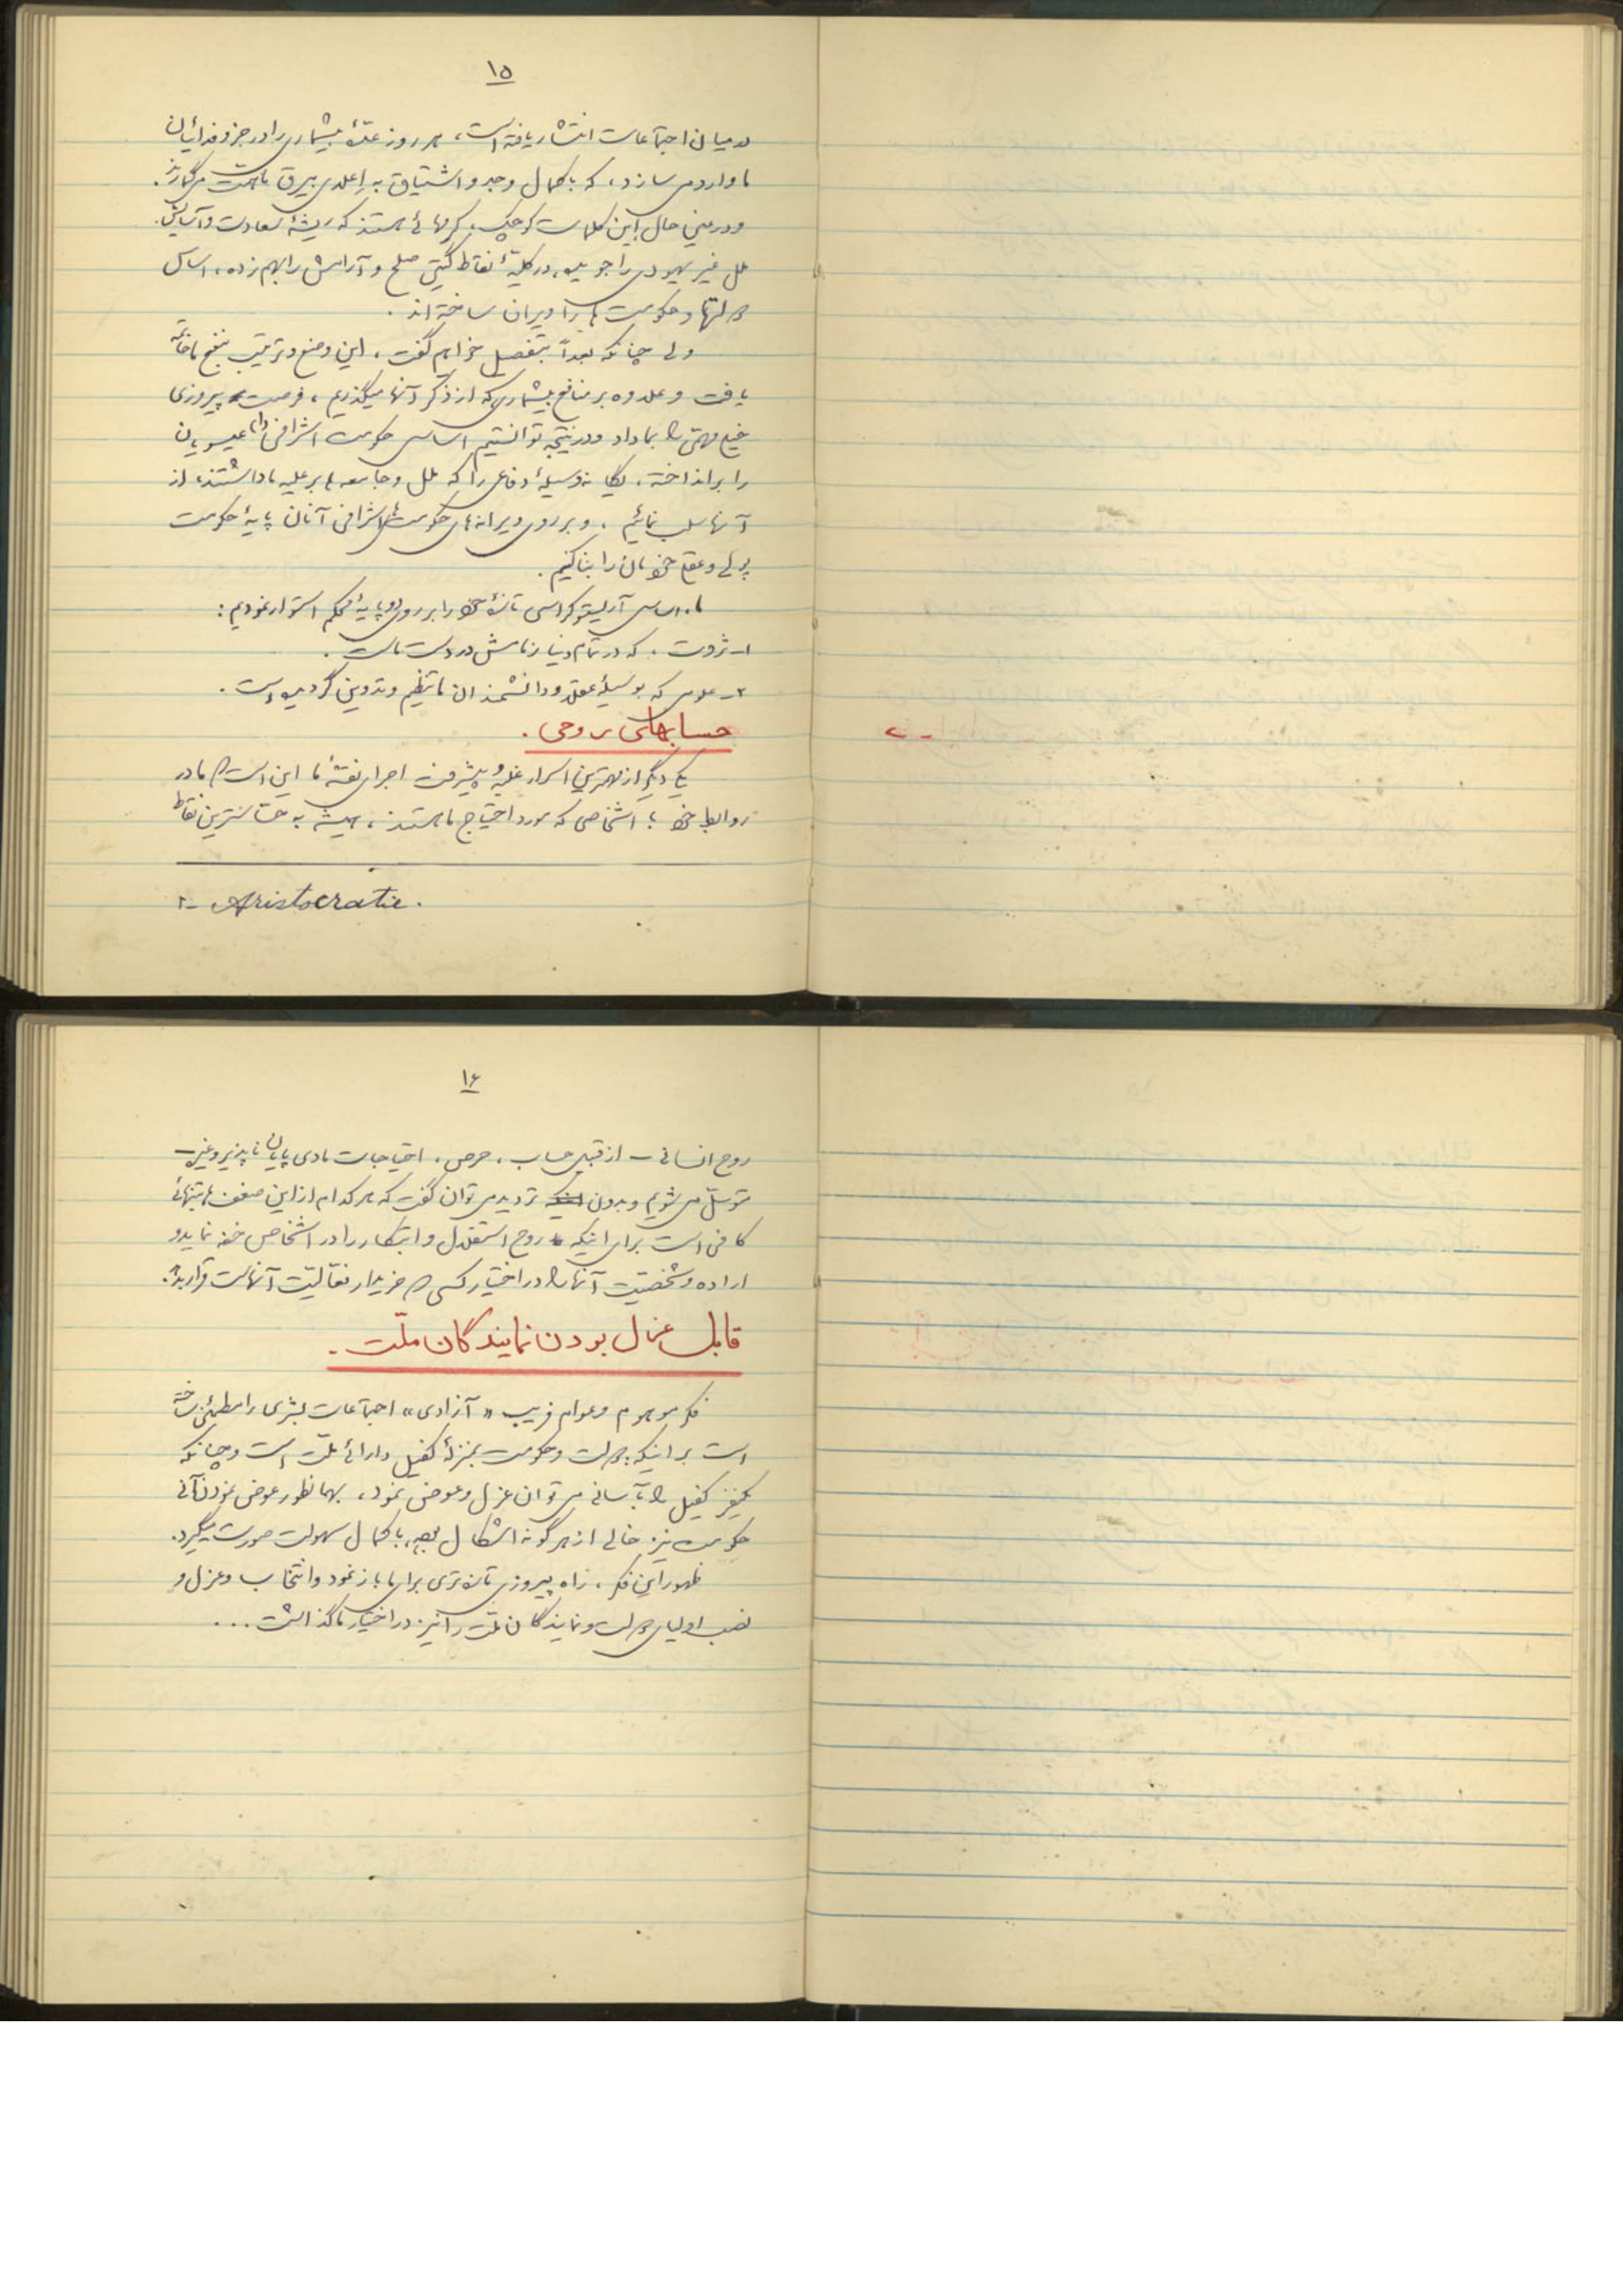 ۱۵
در میان اجتماعات انتشار یافته است، هر روز عدّهٔ بیشماری را در جزو فدائیان
ما وارد می سازد، که با کمال وجد و اشتیاق به اِعلای بیرق ما همت میگمارند.
و در عین حال این کلمات کوچک، کرمهائی هستند که ریشهٔ سعادت و آسایش
ملل غیر یهودی را جویده، در کلیّهٔ نقاط گیتی صلح و آرامش را بهم زده، اساس
دولتها و حکومت ها را ویران ساخته اند.
ولی چنانکه بعداً بتفصیل خواهیم گفت، این وضع و ترتیب بنفع ما خاتمه
یافت و علاوه بر منافع بیشماری که از ذکر آنها میگذریم، فرصت پیروزی
خیلی مهمّی را بما داد و در نتیجه توانستیم اساس حکومت اشرافی عیسویان
را برانداخته، یگانه وسیلهٔ دفاعی را که ملل و جامعه ها بر علیه ما داشتند، از
آنها سلب نمائیم، و بر روی ویرانه های حکومت های اشرافی آنان پایهٔ حکومت
پولی و عقلی خودمان را بنا کنیم.
ما، اساس آریستوکراسی تازهٔ خود را بر روی دو پایهٔ محکم استوار نمودیم:
۱- ثروت، که در تمام دنیا زمامش در دست ماست.
۲- علومی که بوسیلهٔ عقلا و دانشمندان ما تنظیم و تدوین گردیده است.
حسابهای روحی.
یکی دیگر از مهمترین اسرار غلبه و پیشرفت اجرای نقشهٔ ما این است که ما در
روابط خود با اشخاصی که مورد احتیاج ما هستند، همیشه به حسّاسترین نقاط
۲- Aristocratie.
۱۶
روح انسانی – از قبیل حساب، حرص، احتیاجات مادی پایان ناپذیر و غیره –
متوسّل می شویم و بدون تردید می توان گفت که هر کدام از این ضعف ها بتنهائی
کافی است برای اینکه روح استقلال و ابتکار را در اشخاص خفه نماید و
اراده و شخصیّت آنها را در اختیار کسی که خریدار فعّالیّت آنهاست قرار بدهد.
قابل عزل بودن نمایندگان ملّت.
فکر موهوم و عوام فریب «آزادی» اجتماعات بشری را مطمئن ساخته
است بر اینکه دولت و حکومت بمنزلهٔ کفیل دارائی ملّت است و چنانکه
یکنفر کفیل را بآسانی می توان عزل و عوض نمود، بهمانطور عوض نمودن آنی
حکومت نیز خالی از هر گونه اشکال بوده، با کمال سهولت صورت میگیرد.
ظهور این فکر، راه پیروزی تازه تری برای ما باز نمود و انتخاب و عزل و
نصب اولیای دولت و نمایندگان ملّت را نیز در اختیار ما گذاشت...